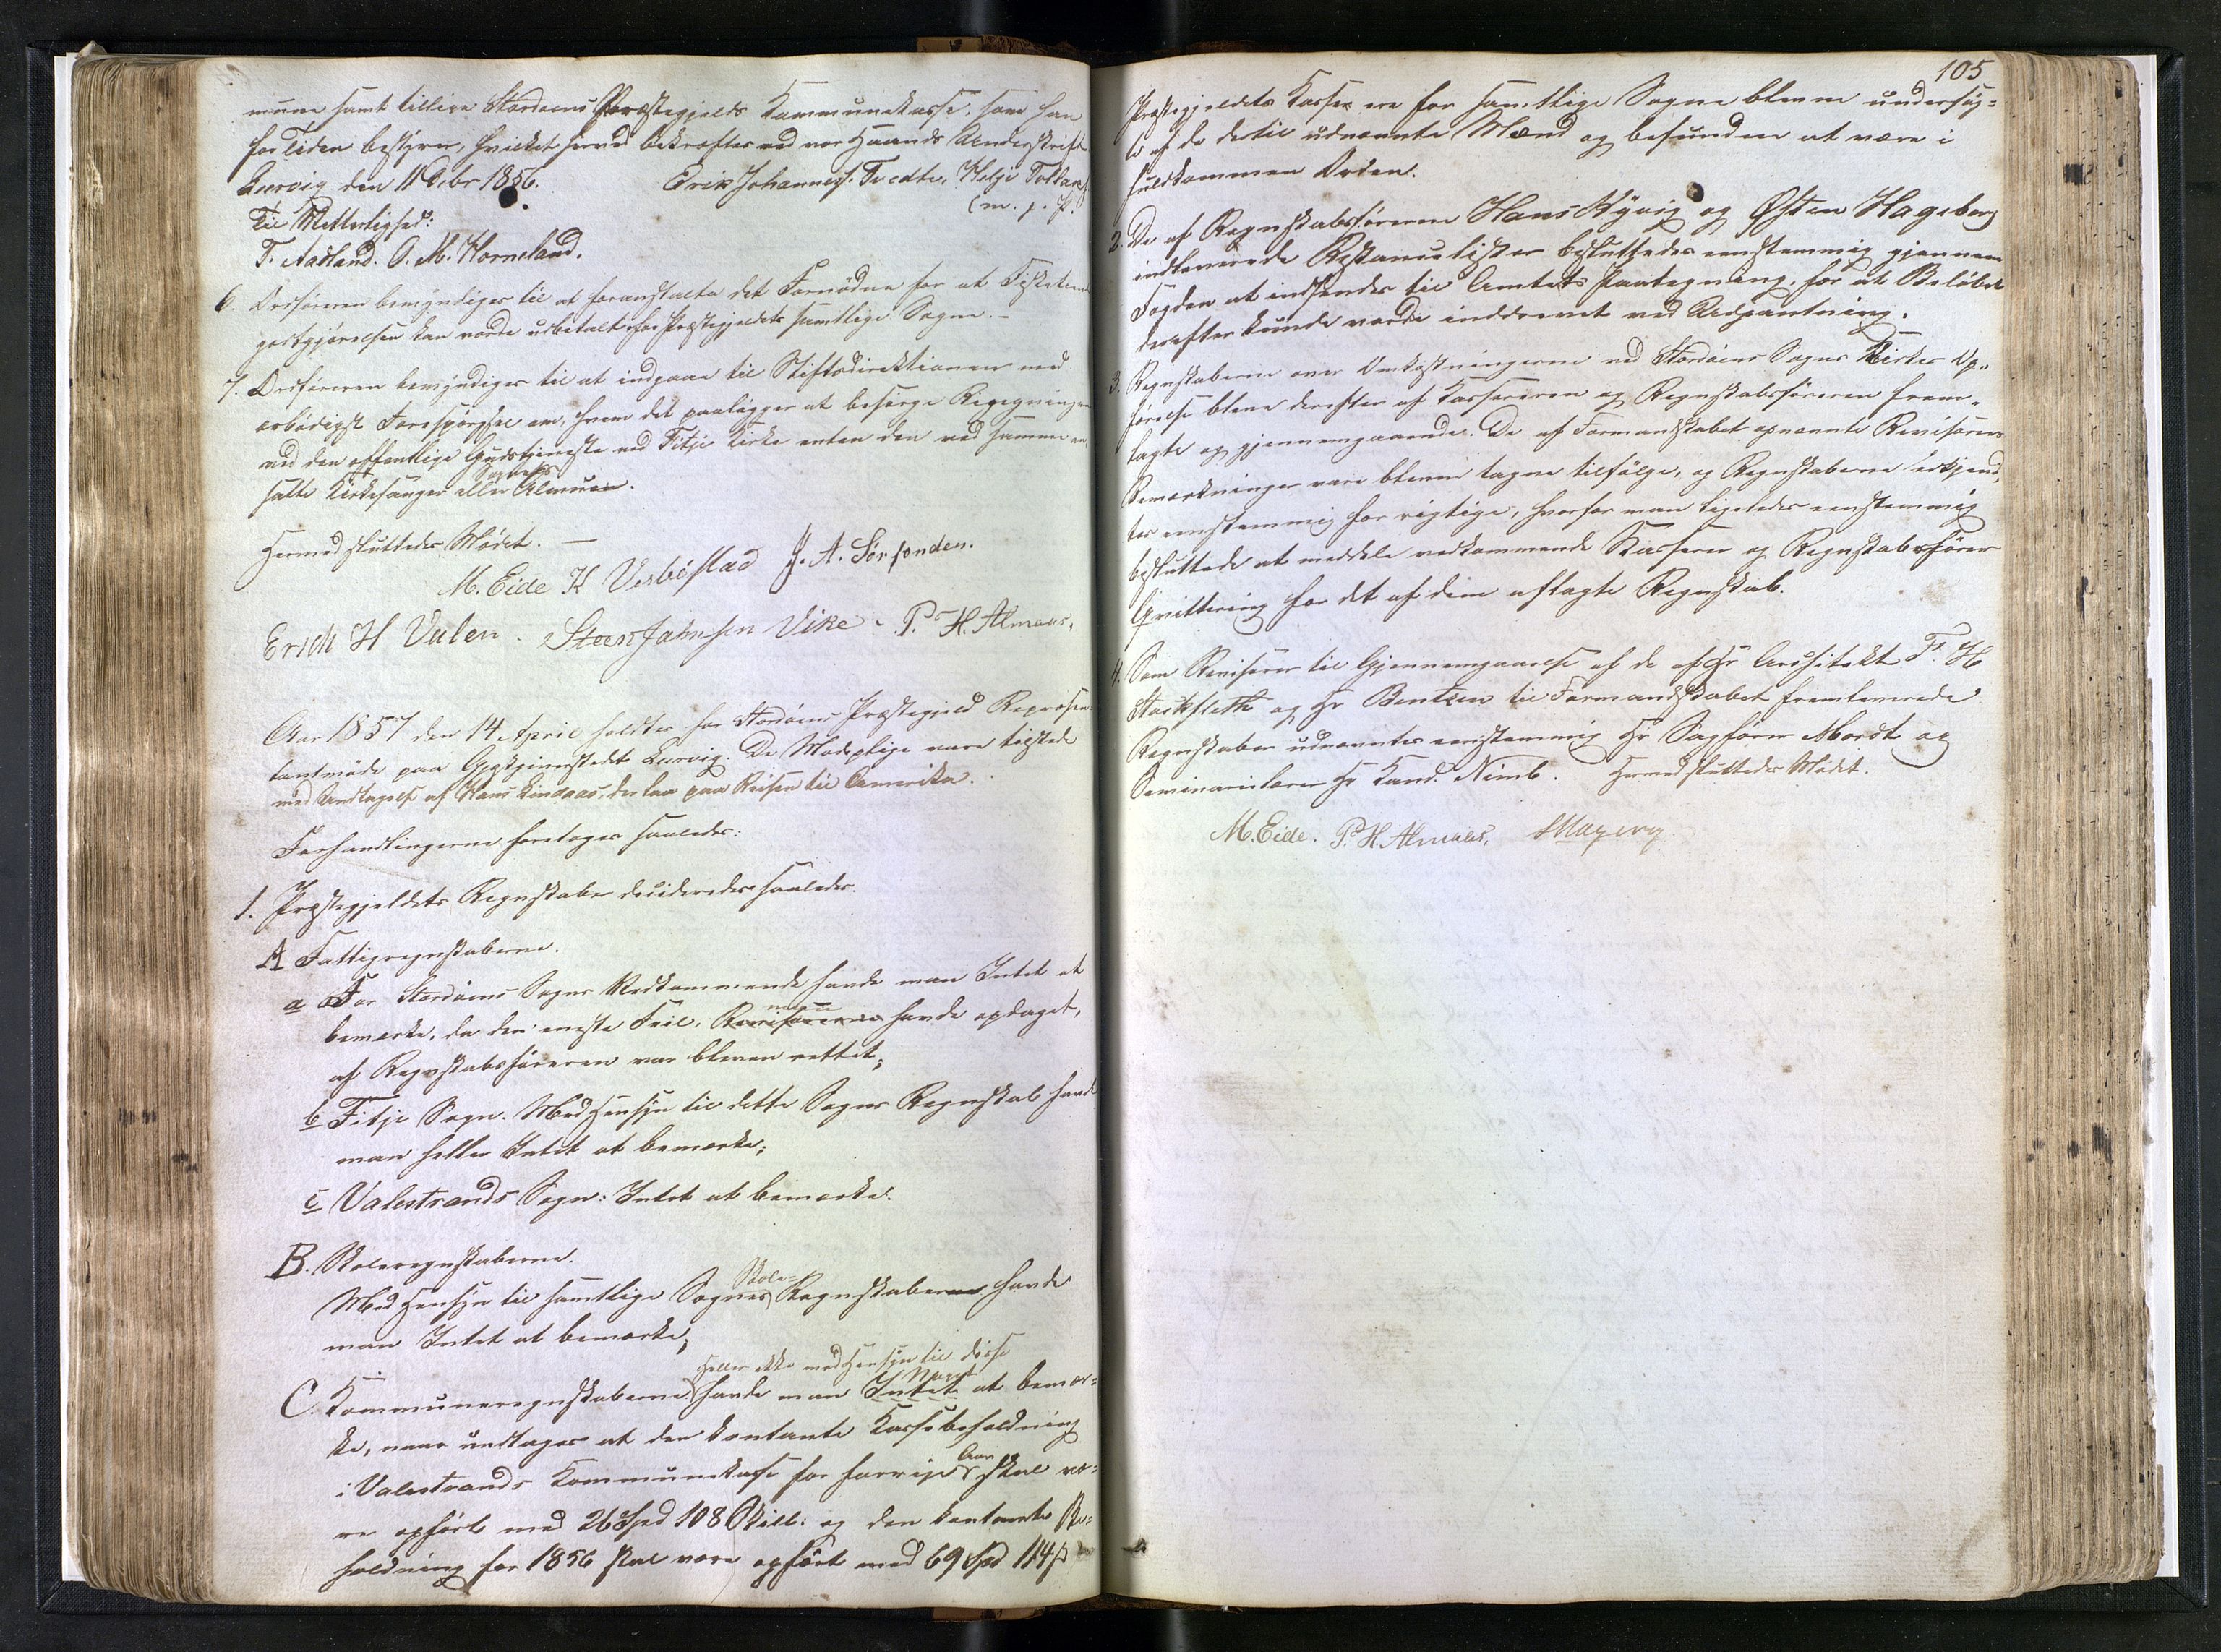 mune samt tillige Stordøens Præstegjelds Kommunekasse, som han
for Tiden bestyrer, hvilket herved bekræftes ved vor Haands Underskrift
Lervig den 11 Debr 1856. Erik Johanness. Tvedte, Helje Tollaks.
(m. p. P.
Til Vitterlighed:
T. Aadland. O. M. Horneland.
6. Ordføreren bemyndiges til at foranstalte det Fornødne for at
godtgjørelsen kan vorde udbetalt for Præstegjeldets samtlige Sogne. –
7. Ordføreren bemyndiges til at indgaae til Stiftsdirektionen med
ærbødigst Forespørgsel om, hvem det paaligger at besørge Ringningen
ved den offentlige Gudstjeneste ved Fitje Kirke enten den ved samme an-
Sognets
satte Kirkesanger eller Almuen.
Hermed sluttedes Mødet. –
M. Eide K Vesbøstad J. A. Sørhonden.
Erich H Valen. Steen Johnsen Vike. P. H. Almaas.
Aar 1857 den 14 April holdtes for Stordøens Præstegjeld Repræsen-
tantmøde paa Gjæstgiverstedet Lervig. De Mødepligtige vare tilstede
med Undtagelse af Hans Lindaas, der laa paa Reisen til Amerika.
Forhandlingerne foretoges saaledes:
1. Præstegjeldets Regnskaber desideredes saaledes.
A Fattigregnskaberne.
a For Stordøens Sogns Vedkommende havde man Intet at
man
bemærke, da den eneste Feil, Revisorerne havde opdaget,
af Regnskabsføreren var bleven rettet;
b Fitje Sogn. Med Hensyn til dette Sogns Regnskab havde
man heller Intet at bemærke;
c Valestrands Sogn: Intet at bemærke.
B. Skoleregnskaberne.
Skole-
Med Hensyn til samtlige Sognes Regnskaberne havde
man Intet at bemærke;
Heller ikke med Hensyn til disse
Noget
C. Kommuneregnskaberne havde man Intet at bemær-
ke, naar undtages at den kontante Kassebeholdning
Aar
i Valestrands Kommunekasse for forrige skal væ-
re opført med 26 Spd 108 Skill: og den kontante Be-
holdning for 1856 skal være opført med 69 Spd 114 ß
105
Præstegjeldets Kasser ere for samtlige Sogne blevne undersøg-
te af de dertil udnævnte Mænd og befundne at være i
fuldkommen Orden.
2. De af Regnskabsførerne Hans Nyvig og Østen Hageberg
indleverede Restanselister besluttedes eenstemmig gjennem
Fogden at indsendes til Amtets Paategning, for at Beløbet
derefter kunde vorde inddrevet ved Udpantning.
3. Regnskaberne over Omkostningerne ved Stordøens Sogns Kirkes Op-
førelse bleve derefter af Kassereren og Regnskabsføreren frem-
lagte og gjennemgaaede. De af Formandskabet opnævnte Revisorers
Bemærkninger vare blevne tagne tilfølge, og Regnskaberne erkjend-
tes eenstemmig for rigtige, hvorfor man ligeledes eenstemmig
besluttede at meddele vedkommende Kasserer og Regnskabsfører
Qvittering for det af dem aflagte Regnskab.
4. Som Revisorer til Gjennemgaaelse af de af Hr Arkitekt Fr. H
Stockfleth og Hr Bentzen til Formandskabet fremleverede
Regnskaber udnævntes eenstemmig Hr Sagfører Mordt og
Seminarielærer Hr Kand. Nimb. Hermed sluttedes Mødet.
M. Eide. P. H. Almaas.